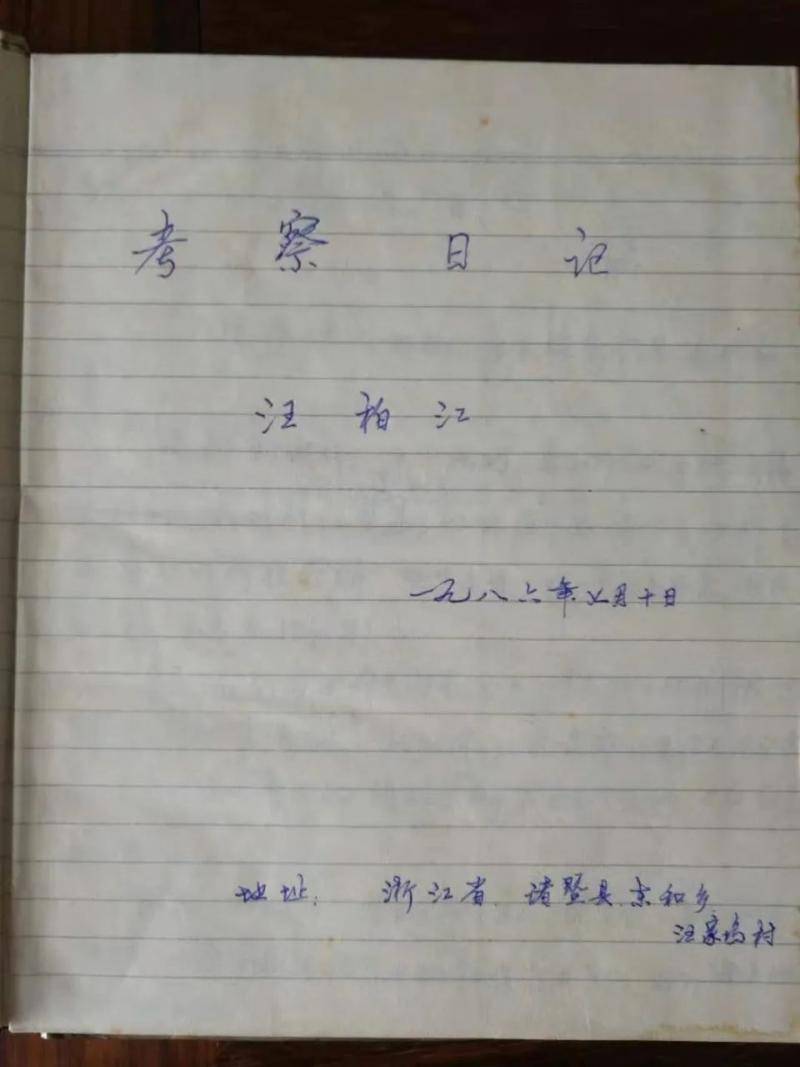 考察日记
汪柏江
一九八六年七月十日
地址: 浙江省 诸暨县 东和乡
汪家坞村